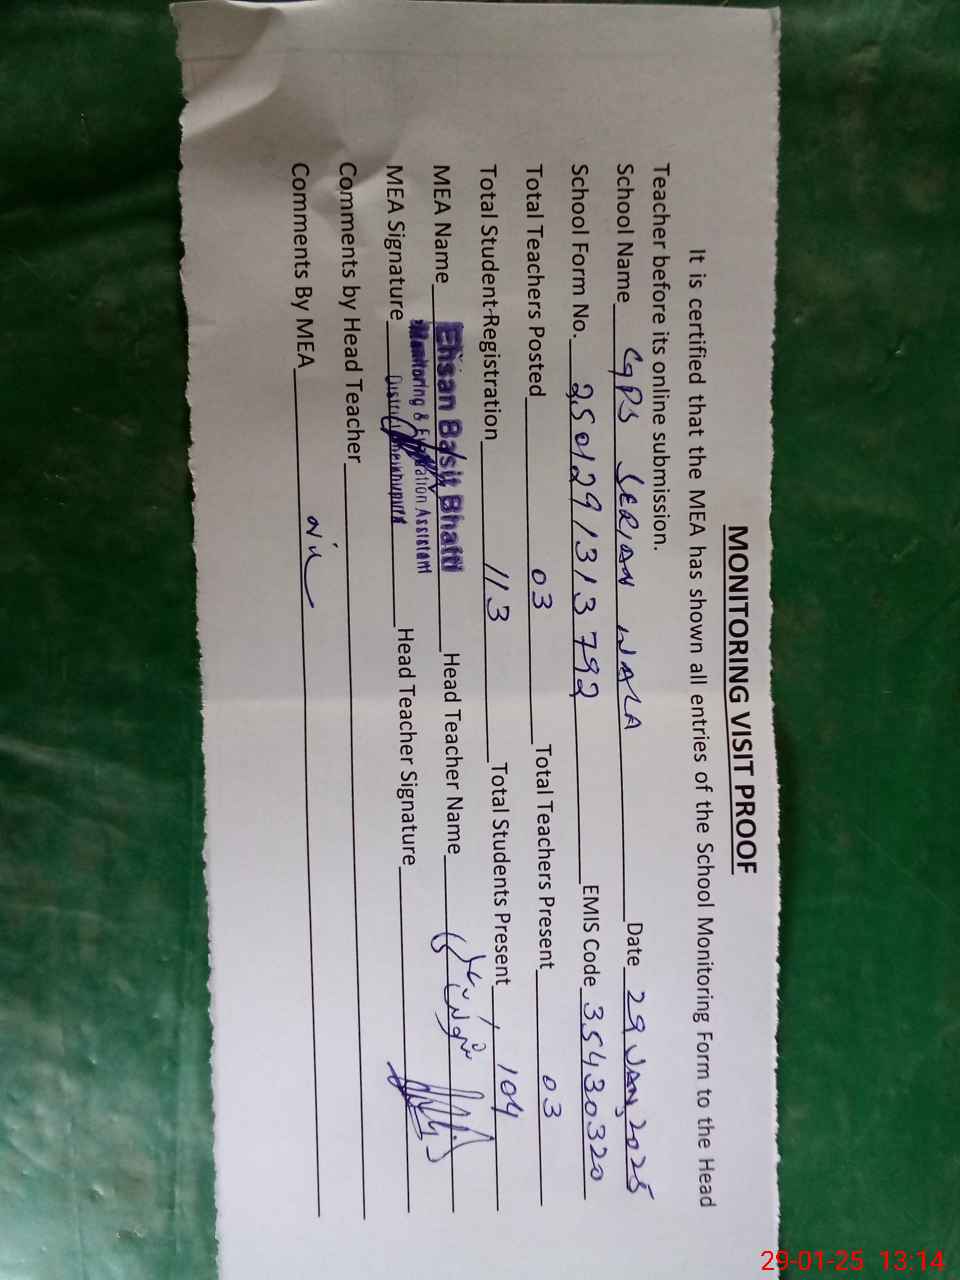 MONITORING VISIT PROOF
It is certified that the MEA has shown all entries of the School Monitoring Form to the Head
Teacher before its online submission.
School Name GPS SERIAN WALA Date 29 JAN, 2025
School Form No. 2501291313792 EMIS Code 35430320
Total Teachers Posted 03 Total Teachers Present 03
Total Student-Registration 113 Total Students Present 104
MEA Name Ehsan Basit Bhatti Head Teacher Name
Monitoring & Evaluation Assistant
MEA Signature District Sheikhupura Head Teacher Signature
Comments by Head Teacher
Comments By MEA Nil
29-01-25 13:14